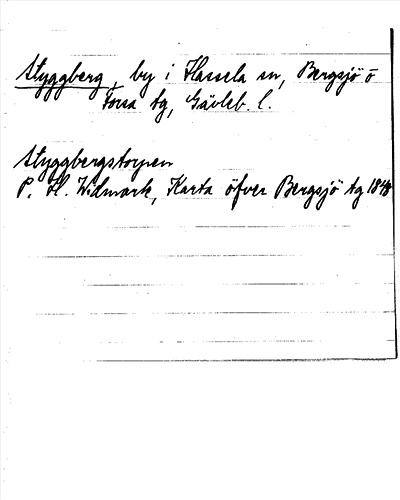 Styggberg, by i Hassela sn, Bergsjö o
Forsa tg, Gävleb. l.
Styggbergstorpen
P. H. Widmark, Karta öfver Bergsjö tg 1848